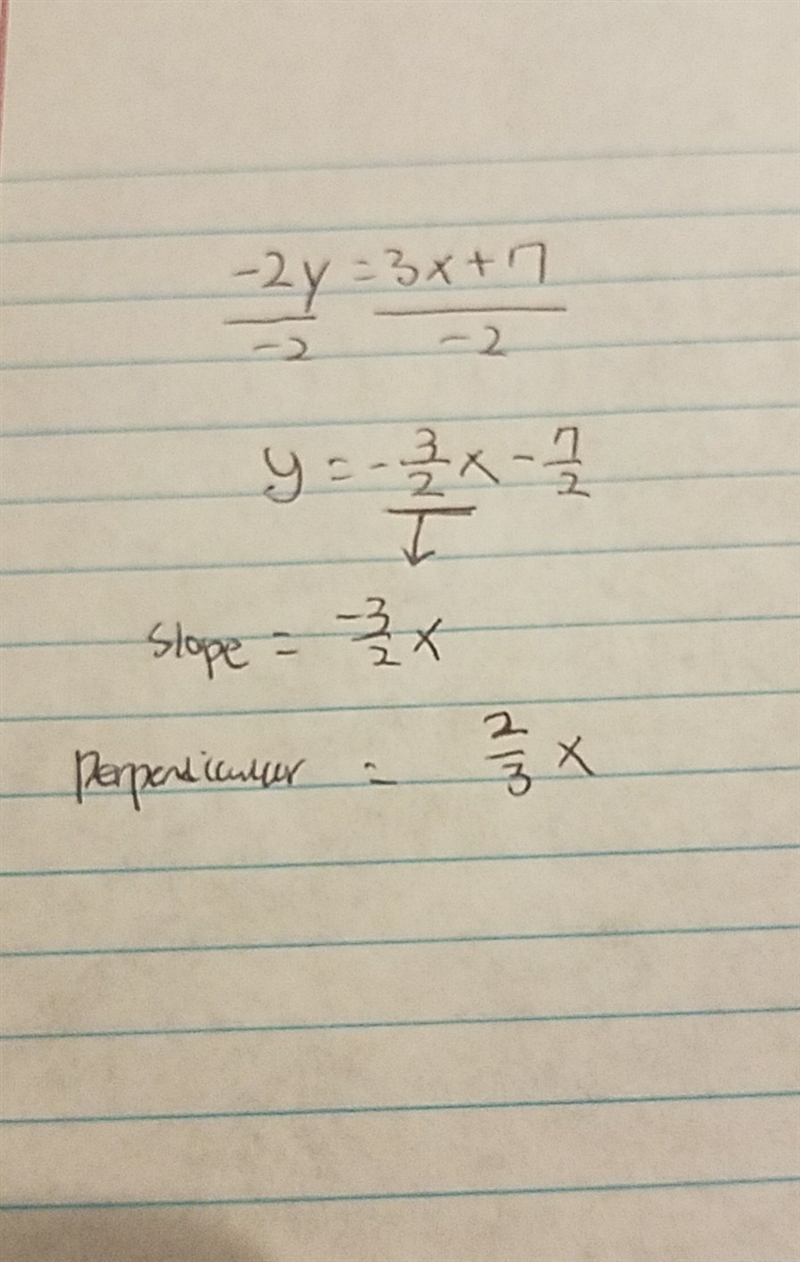 -2y = 3x + 7
-2 -2
y = -3/2 x - 7/2
Slope = -3/2 x
Perpendicular = 2/3 x